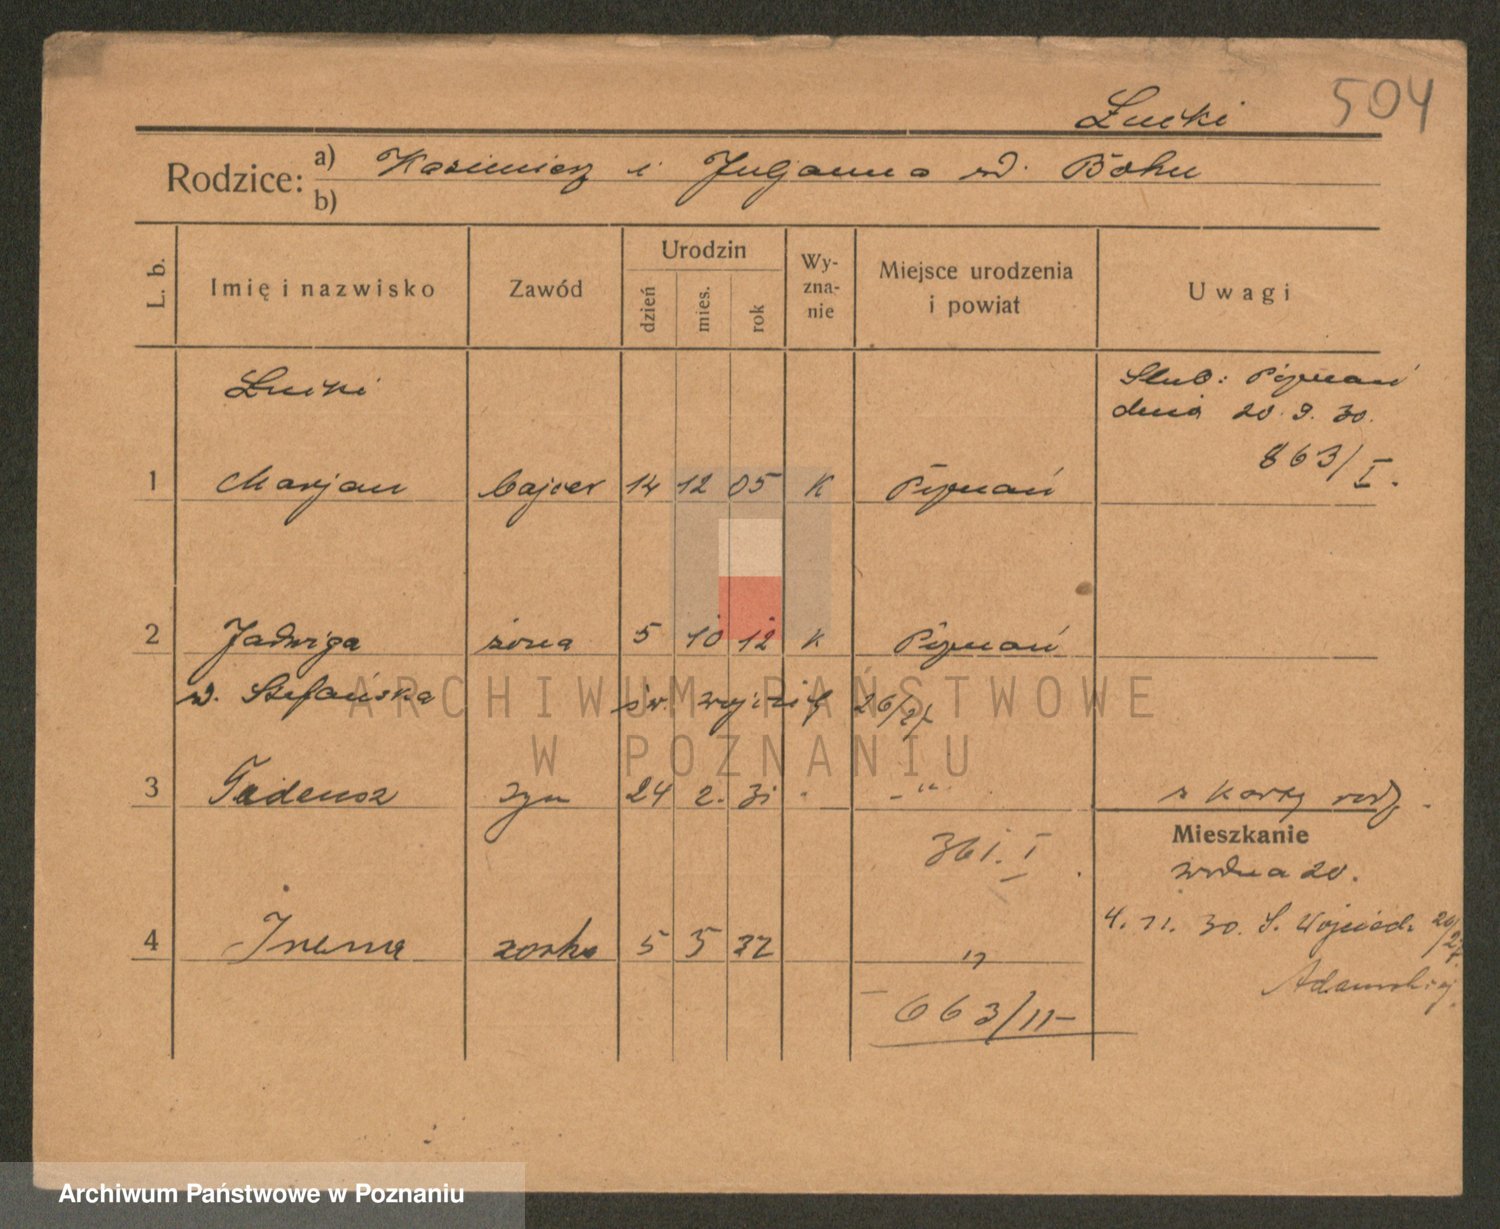 504
Łucki
Rodzice: a) Kazimierz i Juljanna d. Bohn
b)
L. b. Imię i nazwisko Zawód Urodzin dzień mies. rok Wy-zna-nie Miejsce urodzenia i powiat Uwagi
Łucki Ślub: Poznań
dnia 20. 9. 30.
863/I.
1 Marjan bajcer 14 12 05 K Poznań
2 Jadwiga żona 5 10 12 K Poznań
d. Stefańska św. Wojciech 26/27
3 Tadeusz syn 24 2. 31 " -"- z karty rodz.
361. I Mieszkanie
Wodna 20.
4. 11. 30. Ś. Wojciech 26/27.
4 Irena córka 5 5 32 "
Adamskiej
663/II
ARCHIWUM PAŃSTWOWE
W POZNANIU
Archiwum Państwowe w Poznaniu